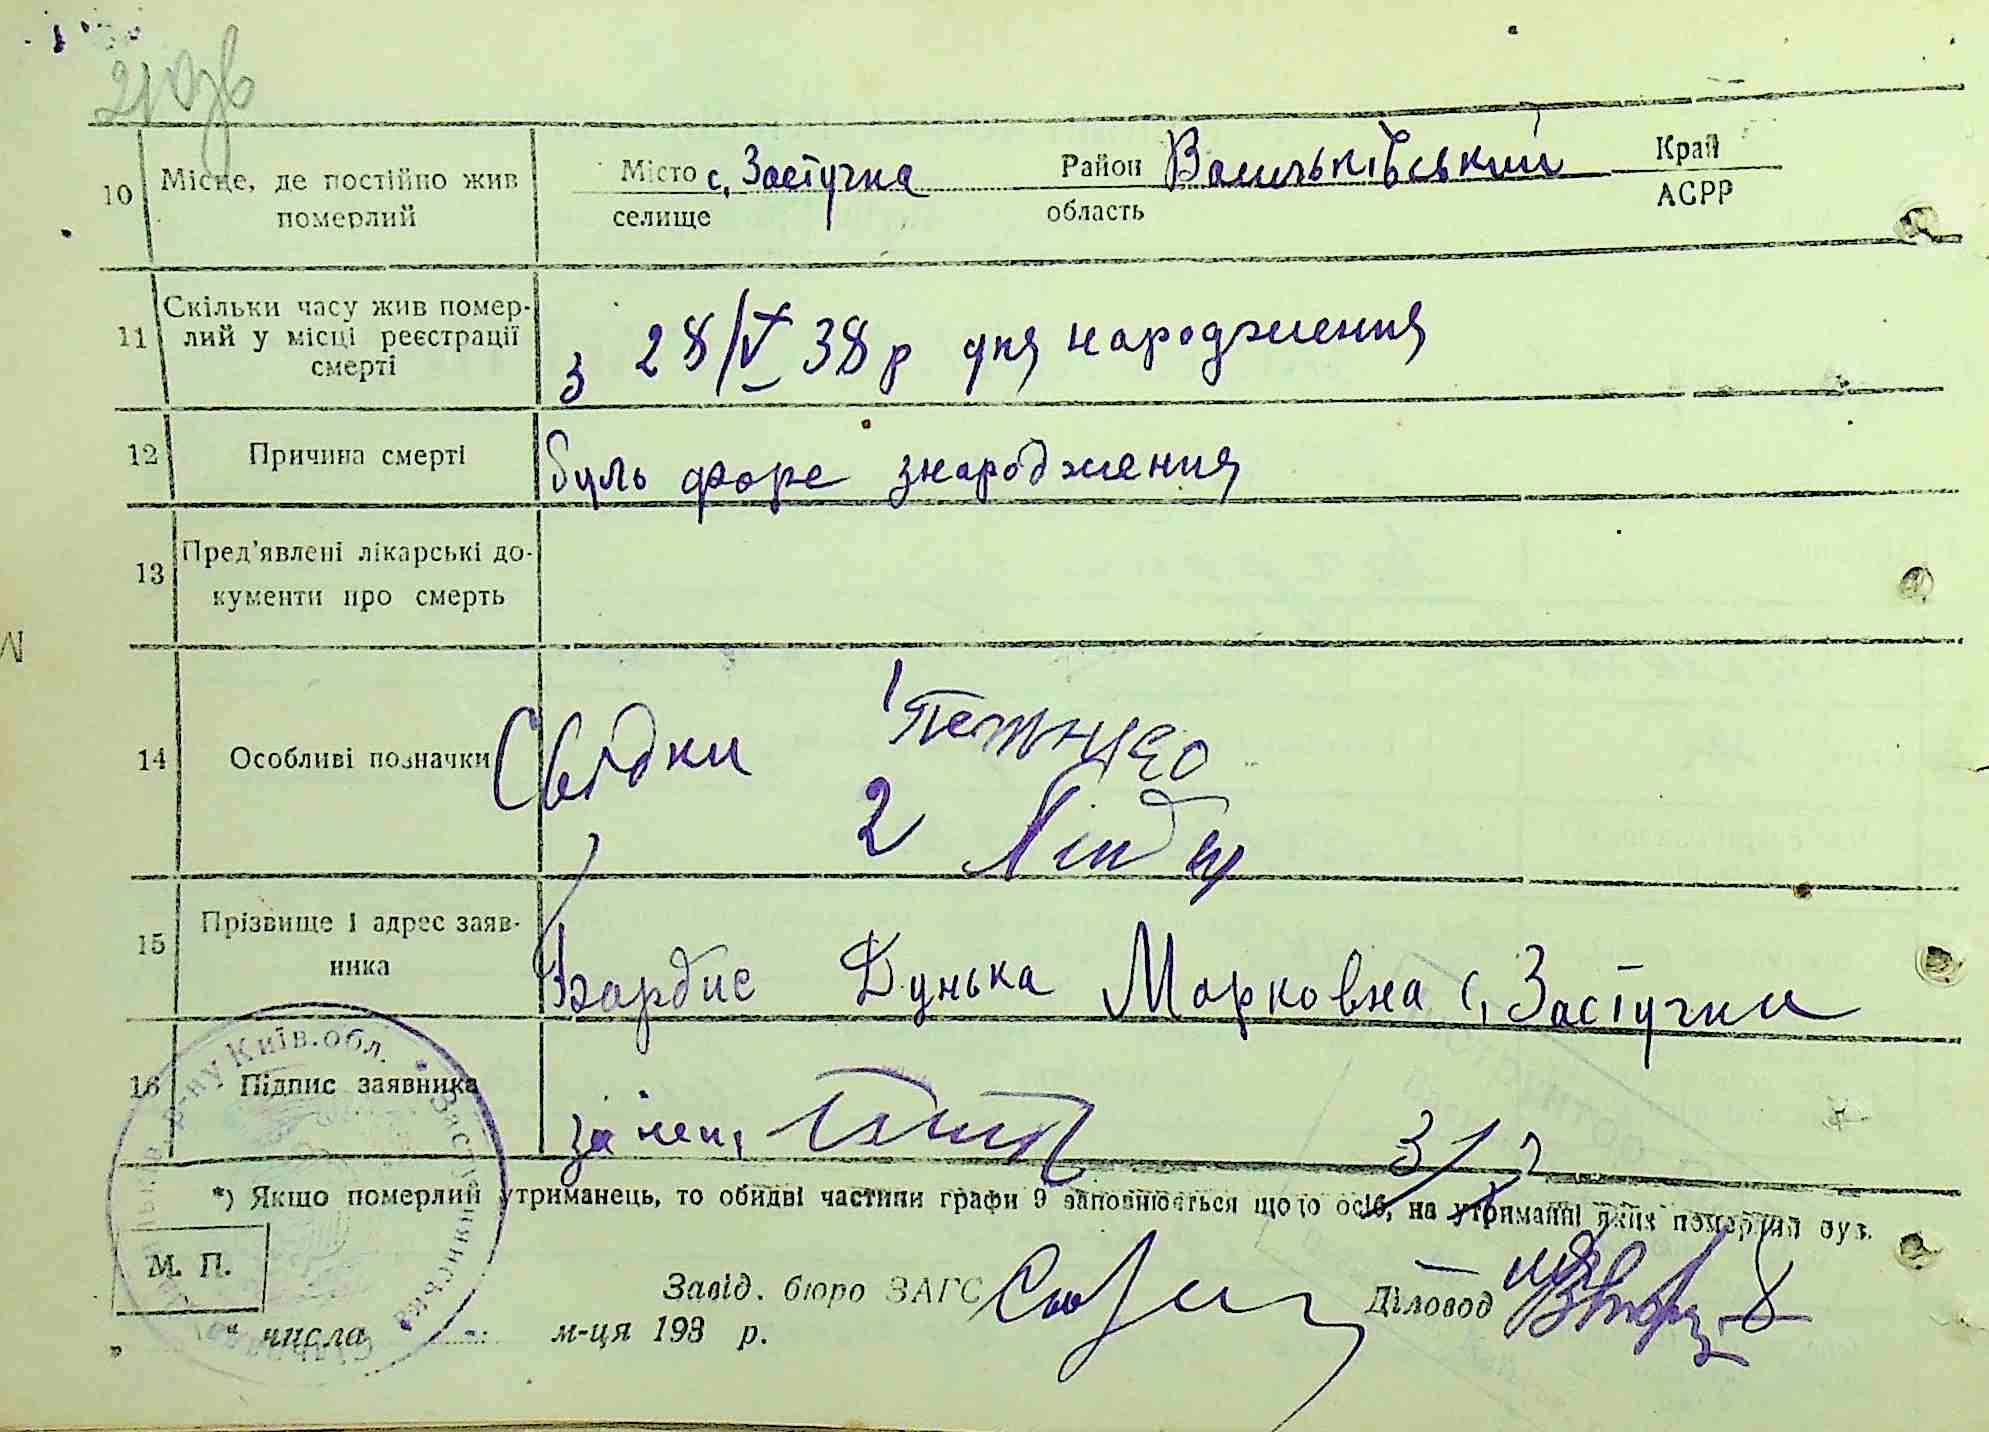 10 Місце, де постійно жив
померлий
Місто с, Застучка Район Васильківський Край
селище область АСРР
11 Скільки часу жив помер-
лий у місці реєстрації
смерті
з 28/V 38 р дня народження
12 Причина смерті
буль хоре знародження
13 Пред'явлені лікарські до-
кументи про смерть
14 Особливі позначки
Свідки 1
2
15 Прізвище і адрес заяв-
ника
Дунька Марковна с, Застучки
16 Підпис заявника
за неи,
*) Якщо померлий утриманець, то обидві частини графи 9 заповнюється щодо осіб, на утриманні яких померлий був.
М. П.
Завід. бюро ЗАГС
Діловод
" числа м-ця 193 р.
р-ну Київ.обл. *